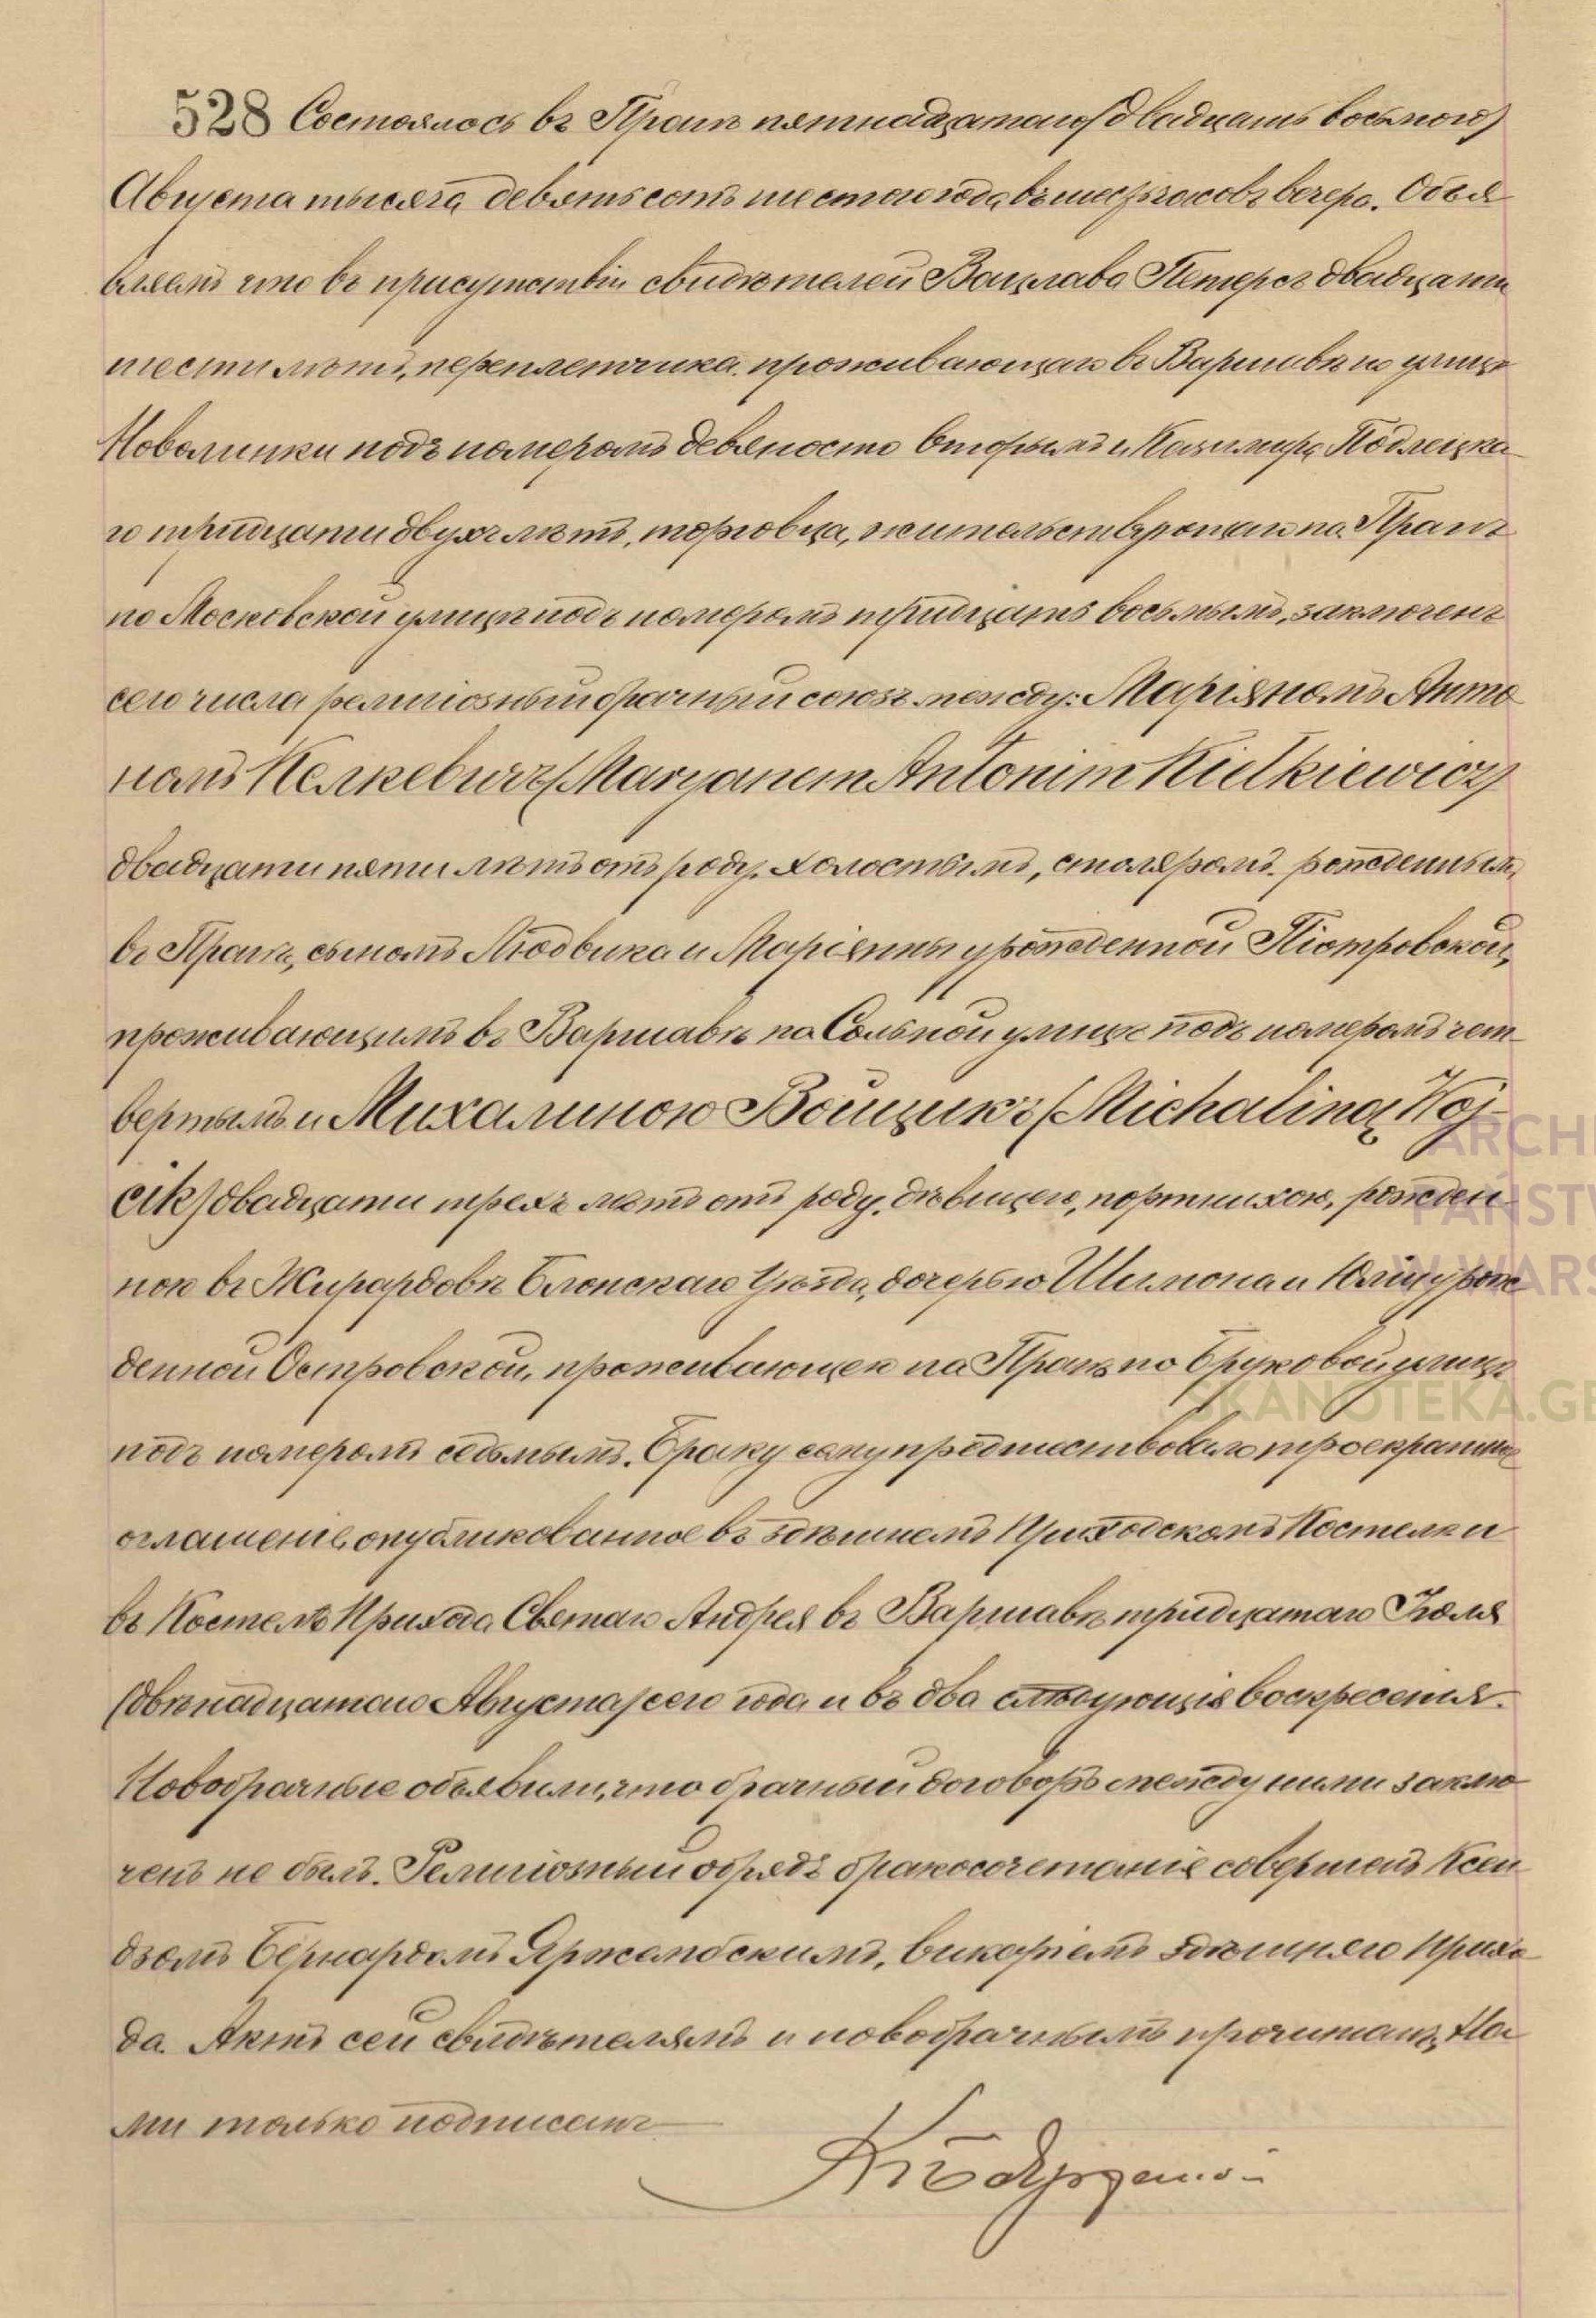 528 Состоялось въ Прагѣ пятнадцатаго/двадцать восьмого/
Августа тысяча девятьсотъ шестого года въ шесть часовъ вечера. Объя
вляемъ что въ присутствіи свидѣтелей Вацлава Петерсъ двадцати
шести лѣтъ, переплетчика проживающаго въ Варшавѣ по улицѣ
Новолипки подъ номеромъ девяносто вторымъ и Казимира Подлецка
го тридцати двухъ лѣтъ, торговца, жительствующаго на Прагѣ
по Московской улицѣ подъ номеромъ тридцать восьмымъ, заключенъ
сего числа религіозный брачный союзъ между: Маріяномъ Анто
номъ Келкевичъ/Maryanem Antonim Kiełkiewicz/
двадцати пяти лѣтъ отъ роду, холостымъ, столяромъ, рожденнымъ
въ Прагѣ, сыномъ Людвика и Маріянны урожденной Піотровской,
проживающимъ въ Варшавѣ на Сольной улицѣ подъ номеромъ чет
вертымъ и Михалиною Войцикъ/Michaliną Woj-
cik/двадцати трехъ лѣтъ отъ роду, дѣвицею, портнихою, рожден
ною въ Жирардовѣ Блонскаго Уѣзда, дочерью Шимона и Юліи урож
денной Островской, проживающею на Прагѣ по Бруковой улицѣ
подъ номеромъ седьмымъ. Браку сему предшествовало троекратное
оглашеніе опубликованное въ здѣшнемъ Приходскомъ Костелѣ и
въ Костелѣ Прихода Святаго Андрея въ Варшавѣ тридцатаго Іюля
/двѣнадцатаго Августа/сего года и въ два слѣдующія воскресенія.
Новобрачные объявили, что брачный договоръ между ними заклю
ченъ не былъ. Религіозный обрядъ бракосочетанія совершенъ Ксен
дзомъ Бернардомъ Яржембскимъ, викаріемъ здѣшняго Прихо
да. Актъ сей свидѣтелямъ и новобрачнымъ прочитанъ, На
ми только подписанъ
ARCHI
PAŃSTW
W WARS
SKANOTEKA.GE